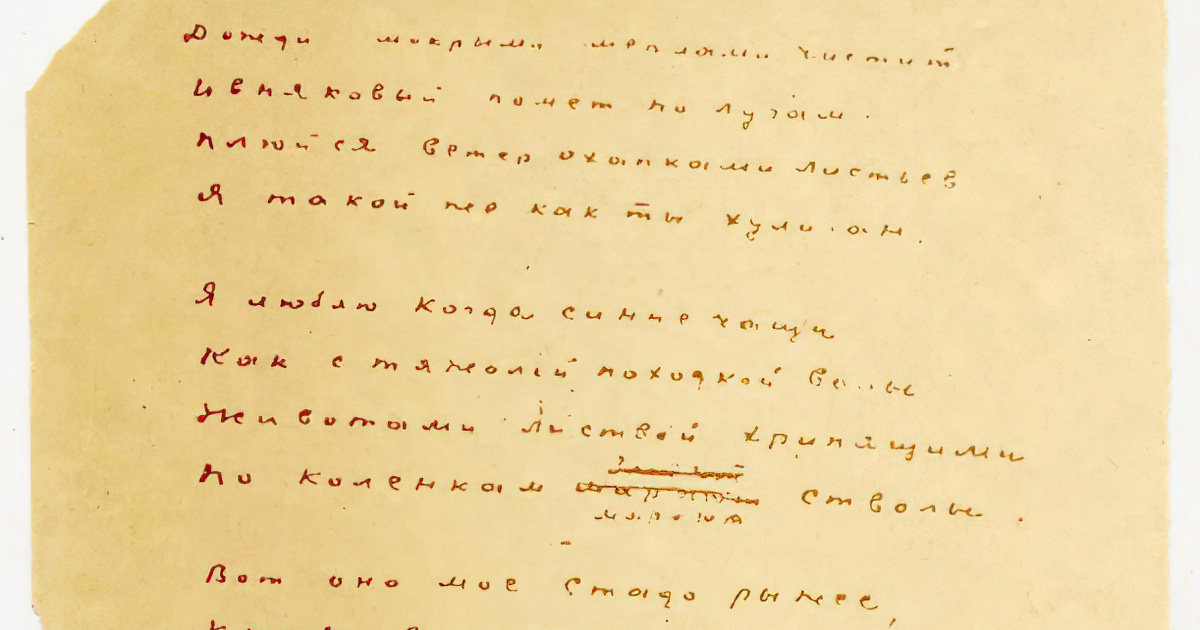 Дожди мокрыми метлами чистит
Ивняковый помет по лугам.
Плюйся ветер охапками листьев
Я такой же как ты хулиган.
Я люблю когда синие чащи
Как с тяжелой походкой волы
Животами листвой хрипящими
По коленкам стволы.
Вот оно мое стадо рыжее,